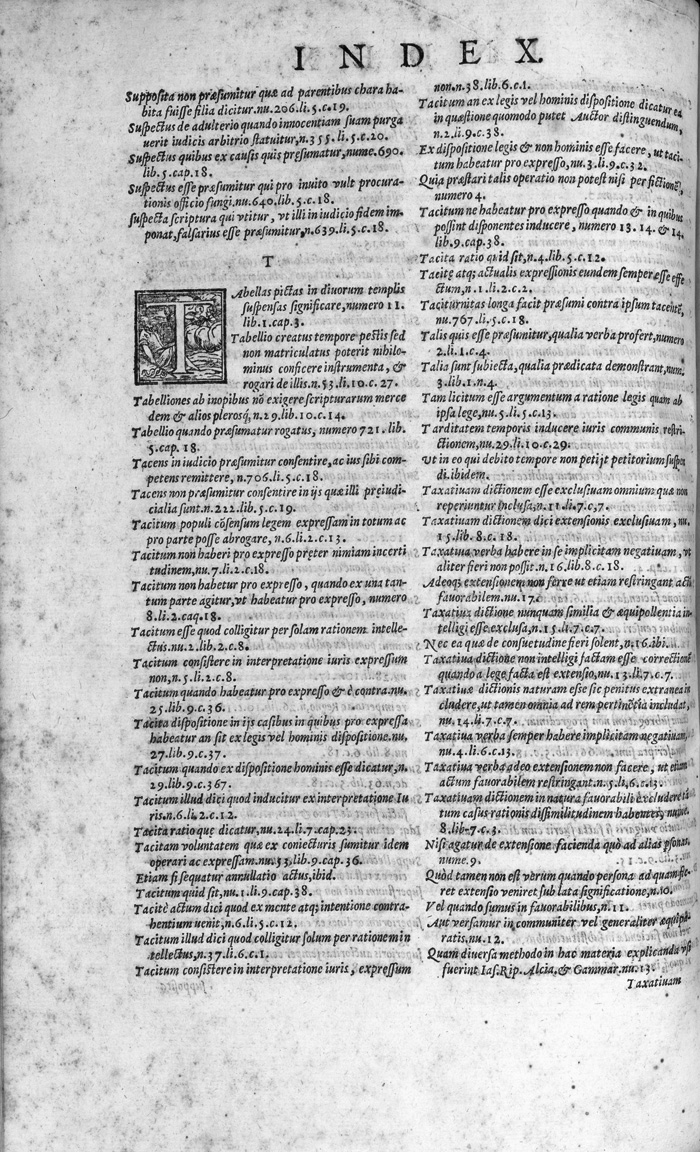 INDEX.
Supposita non præsumitur quæ ad parentibus chara ha-
bita fuisse filia dicitur.nu.206.li.5.c.19.
Suspectus de adulterio quando innocentiam suam purga
uerit iudicis arbitrio statuitur,n.355.li.5.c.20.
Suspectus quibus ex causis quis presumatur,nume.690.
lib.5.cap.18.
Suspectus esse præsumitur qui pro inuito vult procura-
tionis officio fungi,nu.640.lib.5.c.18.
suspecta scriptura qui vtitur, vt illi in iudicio fidem im-
ponat,falsarius esse præsumitur,n.639.li.5.c.18.
T
TAbellas pictas in diuorum templis
suspensas significare,numero 11.
lib.1.cap.3.
Tabellio creatus tempore pestis sed
non matriculatus poterit nihilo-
minus conficere instrumenta, &
rogari de illis.n.53.li.10.c.27.
Tabelliones ab inopibus nõ exigere scripturarum merce
dem & alios plerosq;.n.29.lib.10.c.14.
Tabellio quando præsumatur rogatus, numero 721.lib.
5.cap.18.
Tacens in iudicio præsumitur consentire, ac ius sibi com-
petens remittere, n.706.li.5.c.18.
Tacens non præsumitur consentire in ijs quæ illi preiudi-
cialia sunt.n.222.lib.5.c.19.
Tacitum populi cõsensum legem expressam in totum ac
pro parte posse abrogare, n.6.li.2.c.13.
Tacitum non haberi pro expresso preter nimiam incerti
tudinem,nu.7.li.2.c.18.
Tacitum non habetur pro expresso, quando ex una tan-
tum parte agitur,vt habeatur pro expresso, numero
8.li.2.caq.18.
Tacitum esse quod colligitur per solam rationem intelle-
ctus.nu.2.lib.2.c.8.
Tacitum consistere in interpretatione iuris expressum
non,n.5.li.2.c.8.
Tacitum quando habeatur pro expresso & è contra.nu.
25.lib.9.c.36.
Tacita dispositione in ijs casibus in quibus pro expressa
habeatur an sit ex legis vel hominis dispositione.nu,
27.lib.9.c.37.
Tacitum quando ex dispositione hominis esse dicatur,n.
29.lib.9.c.367.
Tacitum illud dici quod inducitur ex interpretatione Iu
ris.n.6.li.2.c.12.
Tacita ratio que dicatur,nu.24.li.7.cap.23.
Tacitam voluntatem quæ ex coniecturis sumitur idem
operari ac expressam.nu.53.lib.9.cap.36.
Etiam si sequatur annullatio actus,ibid.
Tacitum quid sit,nu.1.li.9.cap.38.
Tacitè actum dici quod ex mente atq; intentione contra-
hentium uenit,n.6.li.5.c.12.
Tacitum illud dici quod colligitur solum per rationem in
tellectus,n.37.li.6.c.1.
Tacitum consistere in interpretatione iuris, expressum
non.n.38.lib.6.c.1.
Tacitum an ex legis vel hominis dispositione dicatur ea
in quæstione quomodo putet Auctor distinguendum,
n.2.li.9.c.38.
Ex dispositione legis & non hominis esse facere, ut taci-
tum habeatur pro expresso,nu.3.li.9.c.32.
Quia præstari talis operatio non potest nisi per fictionē,
numero 4.
Tacitum ne habeatur pro expresso quando & in quibus
possint disponentes inducere, numero 13. 14. & 14.
lib.9.cap.38.
Tacita ratio quid sit,n.4.li.5.c.12.
Tacitę atq; actualis expressionis eundem semper esse effe
ctum,n.1.li.2.c.2.
Taciturnitas longa facit præsumi contra ipsum tacentē,
nu.767.li.5.c.18.
Talis quis esse præsumitur,qualia verba profert,numero
2.li.1.c.4.
Talia sunt subiecta,qualia prædicata demonstrant,num.
3.lib.1.n.4.
Tam licitum esse argumentum a ratione legis quam ab
ipsa lege,nu.5.li.5.c.13.
Tarditatem temporis inducere iuris communis restri-
ctionem,nu.29.li.10.c.29.
Ut in eo qui debito tempore non petijt petitorium suspen
di.ibidem.
Taxatiuam dictionem esse exclusiuam omnium quæ non
reperiuntur inclusa,n.11.li.7.c,7.
Taxatiuam dictionem dici extensionis exclusiuam, nu.
15.lib.8.c.18.
Taxatiua verba habere in se implicitam negatiuam, vt
aliter fieri non possit.n.16.lib.8.c.18.
Adeoq; extensionem non ferre ut etiam restringant actū
fauorabilem.nu.17.
Taxatiua dictione nunquam similia & æquipollentia in-
telligi esse exclusa,n.15.li.7.c.7.
Nec ea quæ de consuetudine fieri solent,n.16.ibi.
Taxatiua dictione non intelligi factam esse correctionē
quando a lege facta est extensio,nu.13.li.7.c.7.
Taxatiuæ dictionis naturam esse sic penitus extranea in
cludere,ut tamen omnia ad rem pertinētia includat,
nu.14.li.7.c.7.
Taxatiua verba semper habere implicitam negatiuam,
nu.4.li.6.c.13.
Taxatiua verba adeo extensionem non facere, ut etiam
actum fauorabilem restringant.n.5.li.6.c.13.
Taxatiuam dictionem in natura fauorabili excludere tā
tum casus rationis dissimilitudinem habentes, nume.
8.lib.7.c.3.
Nisi agatur de extensione facienda quò ad alias psonas,
nume.9.
Quòd tamen non est verum quando persona ad quam fie-
ret extensio veniret sub lata significatione,n.10.
Vel quando sumus in fauorabilibus,n.11.
Aut versamur in communiter vel generaliter æquipa-
ratis,nu.12.
Quam diuersa methodo in hac materia explicanda vsi
fuerint Ias.Rip.Alcia.& Gammar.nu.13.
Taxatiuam